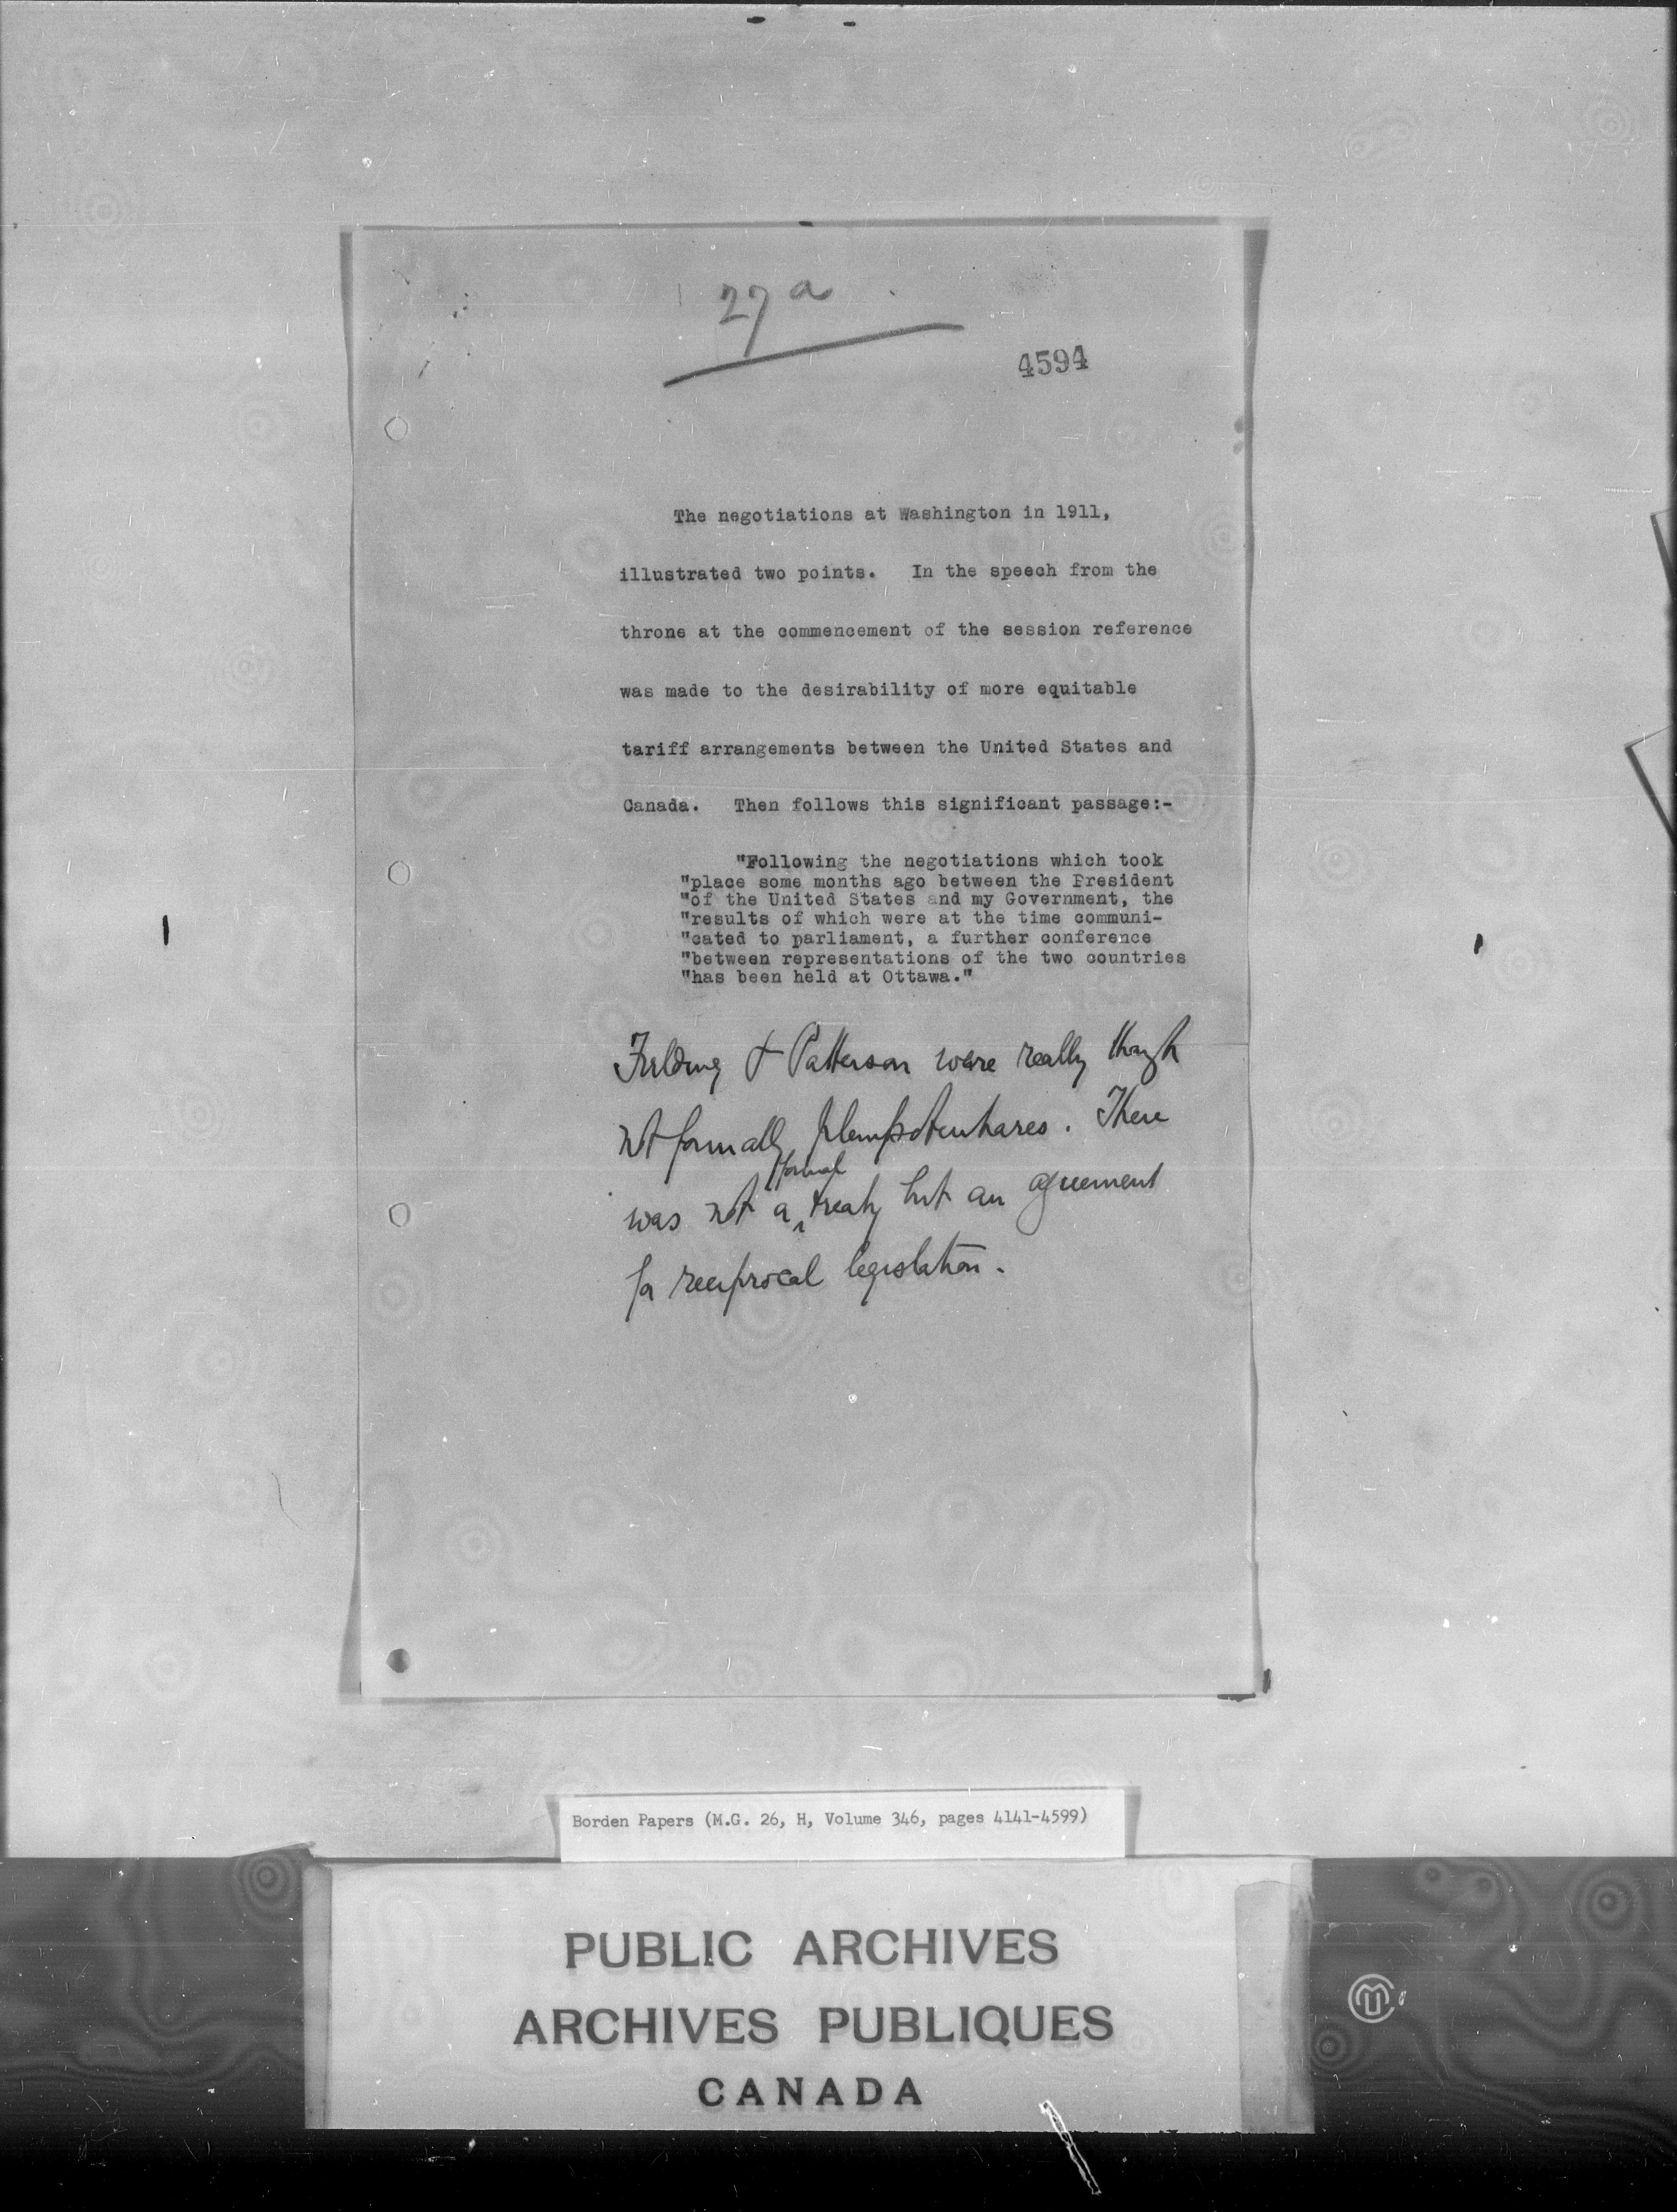 27a
4594
The negotiations at Washington in 1911,
illustrated two points. In the speech from the
throne at the commencement of the session reference
was made to the desirability of more equitable
tariff arrangements between the United States and
Canada. Then follows this significant passage:-
"Following the negotiations which took
"place some months ago between the President
"of the United States and my Government, the
"results of which were at the time communi-
"cated to parliament, a further conference
"between representations of the two countries
"has been held at Ottawa."
Fielding & Patterson were really though
not formally plenipotentiaries. There
formal
was not a ‸ treaty but an agreement
for reciprocal legislation.
Borden Papers (M.G. 26, H, Volume 346, pages 4141-4599)
PUBLIC ARCHIVES
ARCHIVES PUBLIQUES
CANADA